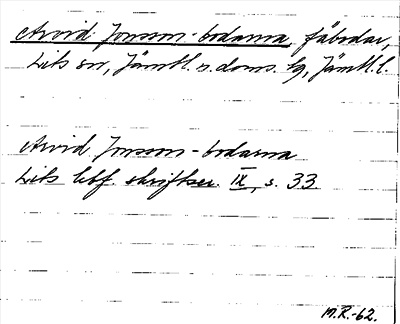 Arvid Jonsson-bodarna, fäbodar,
Lits sn, Jämtl. n. doms. tg, Jämtl. l.
Arvid Jonsson-bodarna
Lits hbf. skriftser. IX, s. 33
M.R.-62.